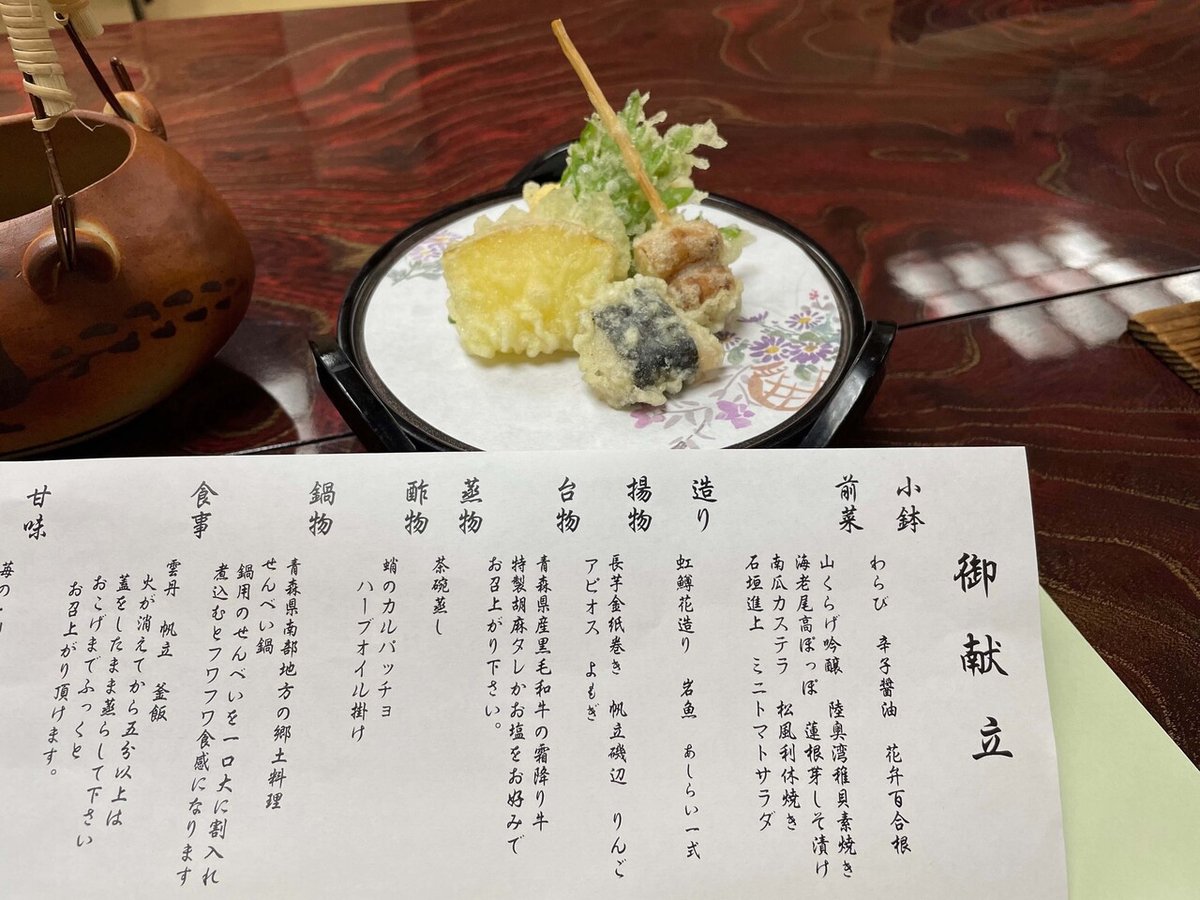 御献立
小鉢
わらび 辛子醤油 花弁百合根
前菜
山くらげ吟醸 陸奥湾稚貝素焼き
海老尾高ぽっぽ 蓮根芽しそ漬け
南瓜カステラ 松風利休焼き
石垣進上 ミニトマトサラダ
造り
虹鱒花造り 岩魚 あしらい一式
揚物
長芋金紙巻き 帆立磯辺 りんご
アピオス よもぎ
台物
青森県産黒毛和牛の霜降り牛
特製胡麻タレかお塩をお好みで
お召上がり下さい。
蒸物
茶碗蒸し
酢物
蛸のカルパッチョ
ハーブオイル掛け
鍋物
青森県南部地方の郷土料理
せんべい鍋
鍋用のせんべいを一口大に割入れ
煮込むとフワフワ食感になります
食事
雲丹 帆立 釜飯
火が消えてから五分以上は
蓋をしたまま蒸らして下さい
おこげまでふっくと
お召上がり頂けます。
甘味
苺の